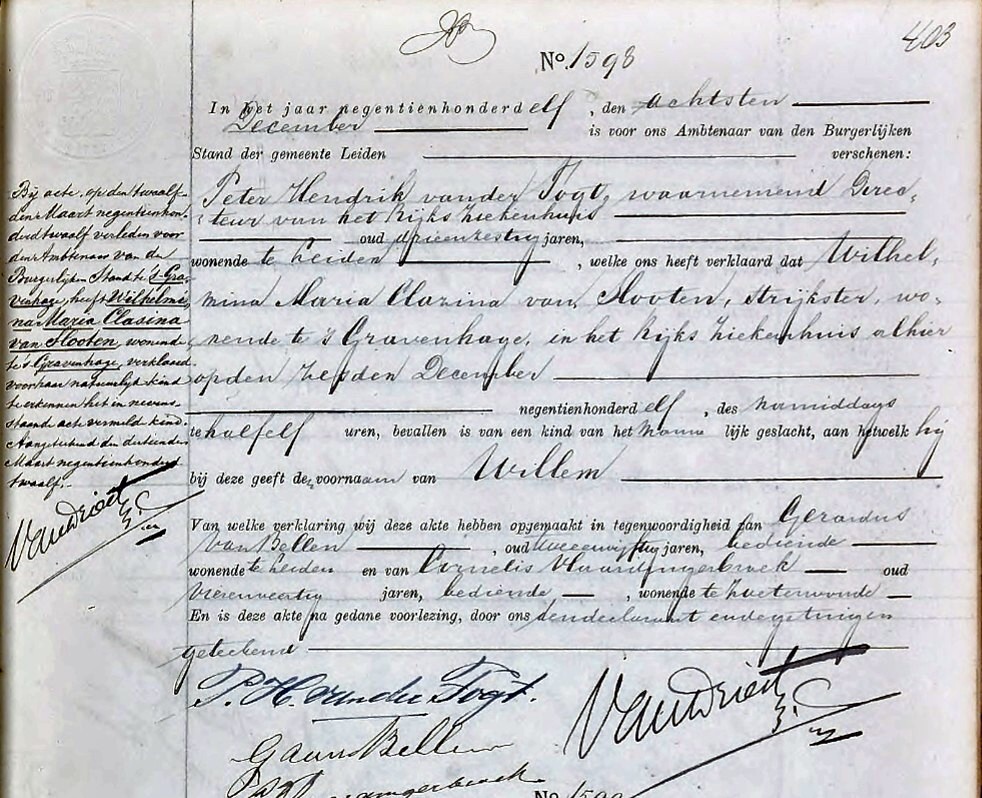 403
No. 1598
In het jaar negentienhonderd elf , den achtsten
December is voor ons Ambtenaar van den Burgerlijken
Stand der gemeente Leiden verschenen:
Peter Hendrik van der Togt, waarnemend Direc,
teur van het Rijks Ziekenhuis
oud drieenzestig jaren,
wonende te Leiden , welke ons heeft verklaard dat Wilhel,
mina Maria Clazina van Slooten, strijkster, wo,
nende te 's Gravenhage, in het Rijks Ziekenhuis alhier
op den zesden December
negentienhonderd elf , des namiddags
te half elf uren, bevallen is van een kind van het manne lijk geslacht, aan hetwelk hij
bij deze geeft den voornaam van Willem
Van welke verklaring wij deze akte hebben opgemaakt in tegenwoordigheid van Gerardus
van Bellen , oud tweeenvijftig jaren, bediende
wonende te Leiden en van Cornelis Vlaardingerbroek oud
vierenveertig jaren, bediende , wonende te Zoeterwoude
En is deze akte na gedane voorlezing, door ons den declarant en de getuigen
geteekend
P. H. van der Togt.
G van Bellen
No. 1599
Bij acte op den twaalf
den Maart negentienhon,
derd twaalf verleden voor
den Ambtenaar van den
Burgerlijken Stand te 's Gra,
venhage, heeft Wilhelmi,
na Maria Clasina
van Slooten, wonende
te 's Gravenhage, verklaard
voor haar natuurlijk kind
te erkennen het in neven,
staande acte vermeld kind.
Aangeteekend den dertienden
Maart negentienhonderd
twaalf.